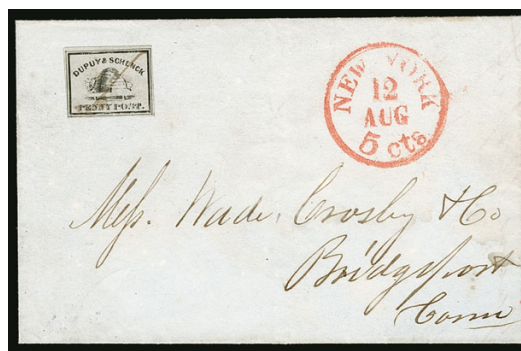 DUPUY & SCHENCK
PENNY POST.
NEW YORK
12
AUG
5 cts
Mess. Wade, Crosby & Co
Bridgeport
Conn